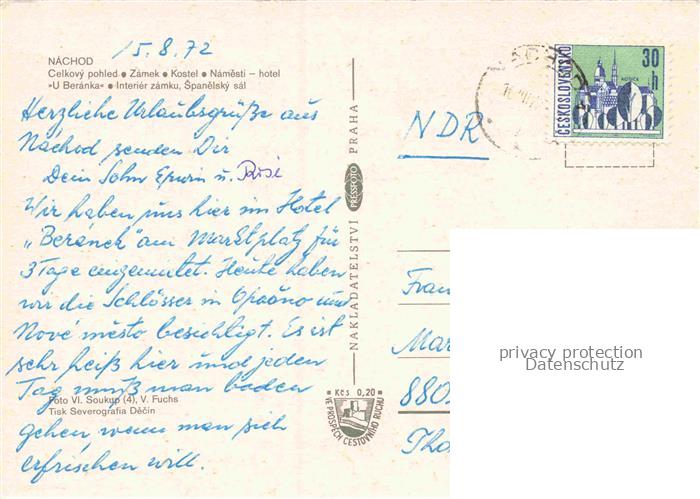 15.8.72
NÁCHOD
Celkový pohled ● Zámek ● Kostel ● Náměstí – hotel
»U Beránka« ● Interiér zámku, Španělský sál
Herzliche Urlaubsgrüße aus
Náchod senden Dir
Dein Sohn Erwin u. Rosi
Wir haben uns hier im Hotel
„Beránek" am Marktplatz für
3 Tage eingemietet. Heute haben
wir die Schlösser in Opočno und
Nové město besichtigt. Es ist
sehr heiß hier und jeden
Tag muß man baden
gehen, wenn man sich
erfrischen will.
Foto Vl. Soukup (4), V. Fuchs
Tisk Severografia Děčín
NAKLADATELSTVÍ PRESSFOTO PRAHA
Kčs 0,20
VE PROSPĚCH CESTOVNÍHO RUCHU
ČESKOSLOVENSKO
30 h
KOŠICE
NDR
Frau
Mar
880
privacy protection
Datenschutz